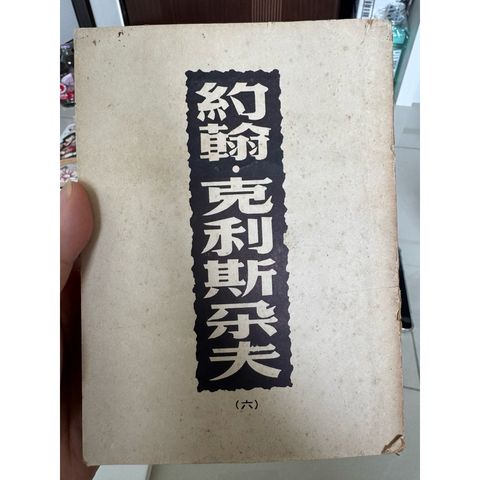 約翰·克利斯朶夫
(六)